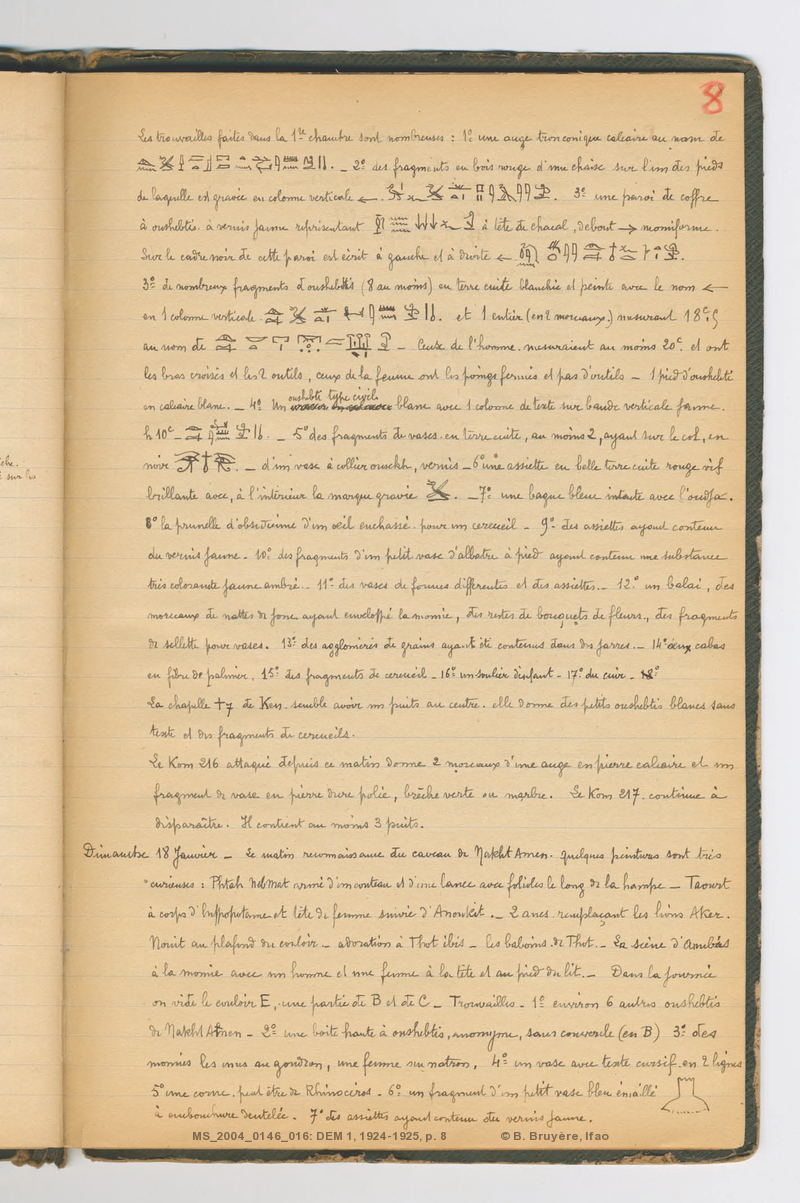 8
Les trouvailles faites dans la 1re chambre sont nombreuses : 1º une auge tronconique calcaire au nom de
_ 2º des fragments en bois rouge d'une chaise sur l'un des pieds
de laquelle est gravée en colonne verticale ← . 3º une paroi de coffre
à oushebtis à vernis jaune représentant à tête de chacal, debout → momiforme.
Sur le cadre noir de cette paroi est écrit à gauche et à droite ←
3º de nombreux fragments d'oushebtis (8 au moins) en terre cuite blanchie et peinte avec le nom ←
en 1 colonne verticale . et 1 entier (en 2 morceaux) mesurant 18c,5
au nom de _ Ceux de l'homme mesuraient au moins 20c et ont
les bras croisés et les 2 outils, ceux de la femme ont les poings fermés et pas d'outils _ 1 pied d'oushebti
en calcaire blanc. _ 4º Un oushebti type civil blanc avec 1 colonne de texte sur bande verticale jaune.
h 10c _ . _ 5º des fragments de vases en terre cuite, au moins 2, ayant sur le col, en
noir . _ d'un vase à collier ousekh, vernis _ 6º une assiette en belle terre cuite rouge vif
brillante avec, à l'intérieur la marque gravée . _ 7º une bague bleue intacte avec l'oudja.
8º la prunelle d'obsidienne d'un œil enchassé pour un cercueil _ 9º des assiettes ayant contenu
du vernis jaune. 10º des fragments d'un petit vase d'albatre à pied ayant contenu une substance
très colorante jaune ambré. _ 11º des vases de formes différentes et des assiettes. _ 12º un balai, des
morceaux de nattes de jonc ayant enveloppé la momie, des restes de bouquets de fleurs, des fragments
de sellette pour vases. 13º des agglomérés de grains ayant été contenus dans des jarres. _ 14º deux cabas
en fibre de palmier, 15º des fragments de cercueil _ 16º un soulier d'enfant _ 17º du cuir _ 18º
La chapelle de Ken semble avoir un puits au centre. elle donne des petits oushebtis blancs sans
texte et des fragments de cercueils.
Le Kom 216 attaqué depuis ce matin donne 2 morceaux d'une auge en pierre calcaire et un
fragment de vase en pierre dure polie, brèche verte ou marbre. Le Kom 217 continue à
disparaître. Il contient au moins 3 puits.
Dimanche 18 Janvier _ Le matin reconnaissance du caveau de Nakht Amen. quelques peintures sont très
curieuses : Phtah NebMat armé d'un couteau et d'une lance avec folioles le long de la hampe _ Taourt
à corps d'hippopotame et tête de femme suivie d'Anoukit. _ 2 anes remplaçant les lions Aker.
Nouit au plafond du couloir _ adoration à Thot ibis _ les babouins de Thot. _ La scène d'Anubis
à la momie avec un homme et une femme à la tête et au pied du lit. _ Dans la journée
on vide le couloir E, une partie de B et de C _ Trouvailles _ 1º environ 6 autres oushebtis
de Nakht Amen _ 2º une boîte haute à oushebtis, anonyme, sans couvercle (en B) 3º des
momies les unes au goudron, une femme au natron, 4º un vase avec texte cursif en 2 lignes
5º une corne peut être de Rhinocéros _ 6º un fragment d'un petit vase bleu émaillé
à embouchure dentelée. 7º des assiettes ayant contenu du vernis jaune.
MS_2004_0146_016: DEM 1, 1924-1925, p. 8 © B. Bruyère, Ifao